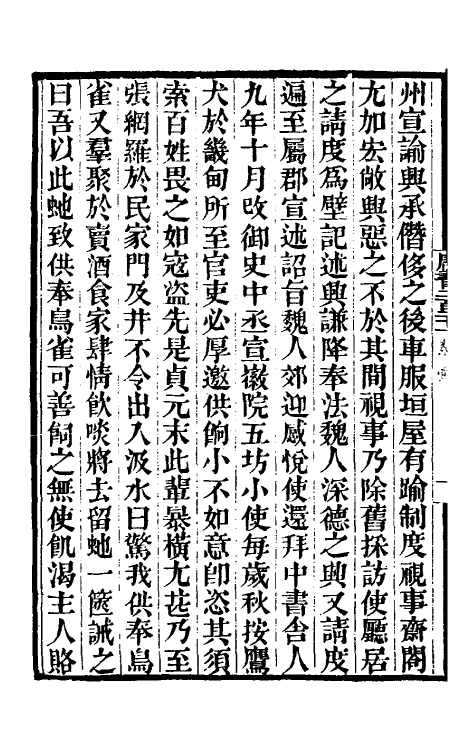 州宣諭興承僭侈之後車服垣屋有踰制度視事齋閣
尤加宏敞興惡之不於其間視事乃除舊採訪使廳居
之請度爲壁記述興謙降奉法魏人深德之興又請度
遍至屬郡宣述詔旨魏人郊迎感悅使還拜中書舍人
九年十月改御史中丞宣徽院五坊小使每歲秋按鷹
犬於畿甸所至官吏必厚邀供餉小不如意卽恣其須
索百姓畏之如寇盗先是貞元末此輩暴橫尤甚乃至
張網羅於民家門及井不令出入汲水曰驚我供奉鳥
雀又羣聚於賣酒食家肆情飲啖將去留虵一篋誡之
曰吾以此虵致供奉鳥雀可善飼之無使飢渴主人賂